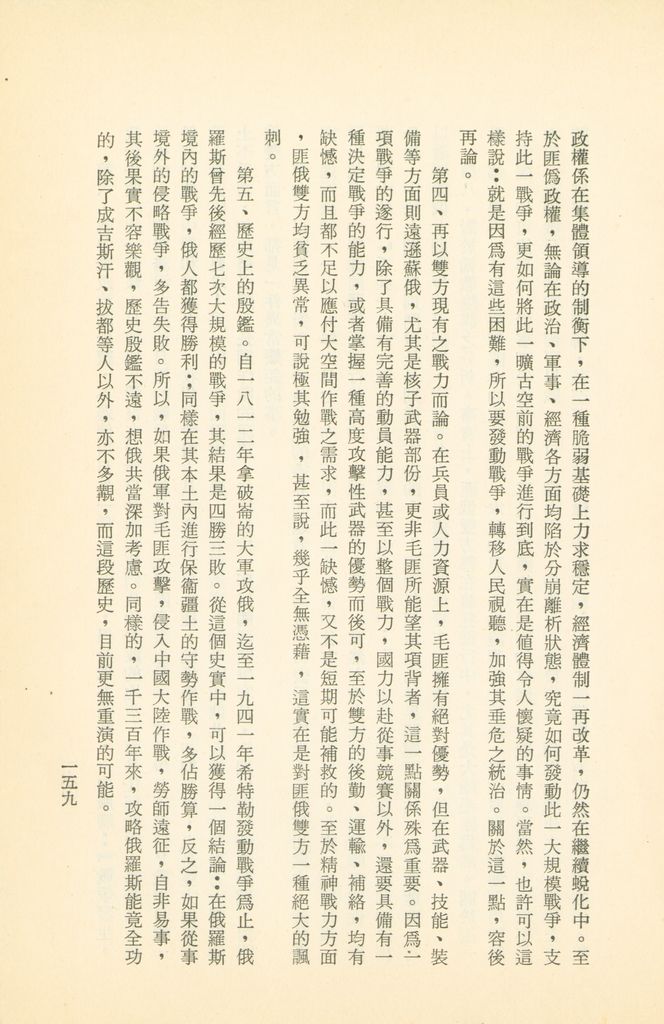 政權係在集體領導的制衡下，在一種脆弱基礎上力求穩定，經濟體制一再改革，仍然在繼續蛻化中。至
於匪偽政權，無論在政治、軍事、經濟各方面均陷於分崩離析狀態，究竟如何發動此一大規模戰爭，支
持此一戰爭，更如何將此一曠古空前的戰爭進行到底，實在是值得令人懷疑的事情。當然，也許可以這
樣說：就是因爲有這些困難，所以要發動戰爭，轉移人民視聽，加強其垂危之統治。關於這一點，容後
再論。
第四、再以雙方現有之戰力而論。在兵員或人力資源上，毛匪擁有絕對優勢，但在武器、技能、裝
備等方面則遠遜蘇俄，尤其是核子武器部份，更非毛匪所能望其項背者，這一點關係殊爲重要。因爲一
項戰爭的遂行，除了具備有完善的動員能力，甚至以整個戰力，國力以赴從事競賽以外，還要具備有一
種決定戰爭的能力，或者掌握一種高度攻擊性武器的優勢而後可，至於雙方的後勤、運輸、補給，均有
缺憾，而且都不足以應付大空間作戰之需求，而此一缺憾，又不是短期可能補救的。至於精神戰力方面
，匪俄雙方均貧乏異常，可說極其勉強，甚至說，幾乎全無憑藉，這實在是對匪俄雙方一種絕大的諷
刺。
第五、歷史上的殷鑑。自一八一二年拿破崙的大軍攻俄，迄至一九四一年希特勒發動戰爭爲止，俄
羅斯曾先後經歷七次大規模的戰爭，其結果是四勝三敗。從這個史實中，可以獲得一個結論：在俄羅斯
境內的戰爭，俄人都獲得勝利；同樣在其本土內進行保衞疆土的守勢作戰，多佔勝算，反之，如果從事
境外的侵略戰爭，多告失敗。所以，如果俄軍對毛匪攻擊，侵入中國大陸作戰，勞師遠征，自非易事，
其後果實不容樂觀，歷史殷鑑不遠，想俄共當深加考慮。同樣的，一千三百年來，攻略俄羅斯能竟全功
的，除了成吉斯汗、拔都等人以外，亦不多觀，而這段歷史，目前更無重演的可能。
一五九